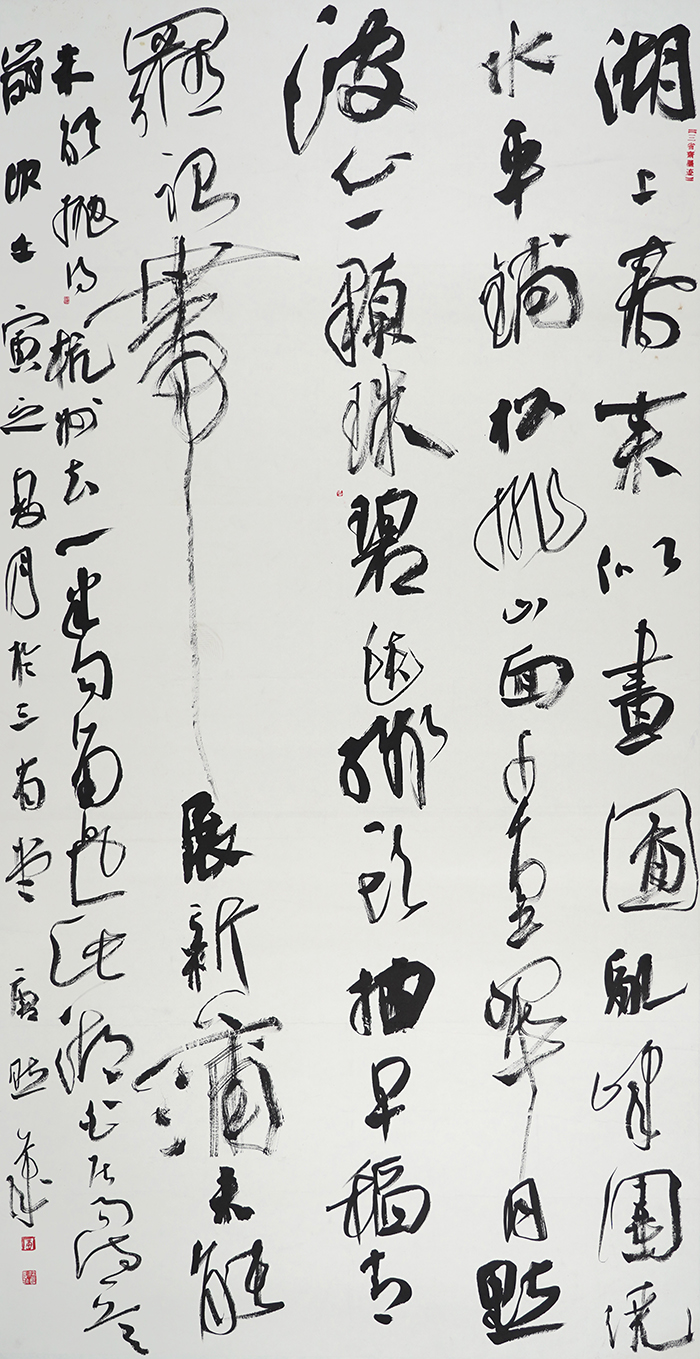 湖上春来似畫圖亂峰圍繞
水平鋪松排山面千重翠月點
波心一顆珠碧毯線頭抽早稻青
羅裙帶展新蒲未能
未能拋得杭州去一半勾留是此湖白居易詩
歲次壬寅之夏月於三省堂